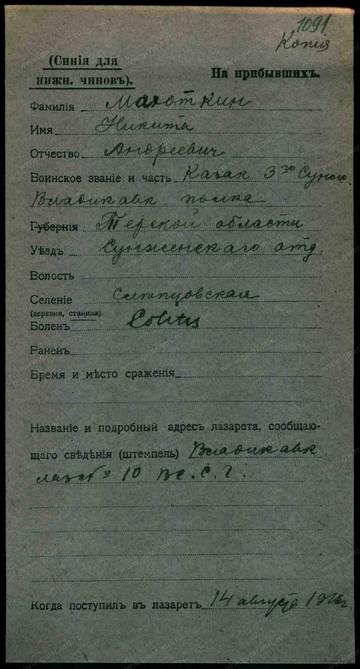 1091
Копия
(Синія для
нижн. чиновъ).
На прибывшихъ.
Фамилія Махоткин
Имя Никита
Отчество Андреевич
Воинское званіе и часть Казак 3го Сунж.
Владикавк полка
Губернія Терской области
Уѣздъ Сунженскаго отд
Волость
Селеніе Слепцовская
(деревня, станица)
Боленъ Colitis
Раненъ
Время и мѣсто сраженія
Названіе и подробный адресъ лазарета, сообщаю-
щаго свѣдѣнія (штемпель) Владикавк
лаз № 10 В.С.Г.
Когда поступилъ въ лазаретъ 14 августа 1916 г